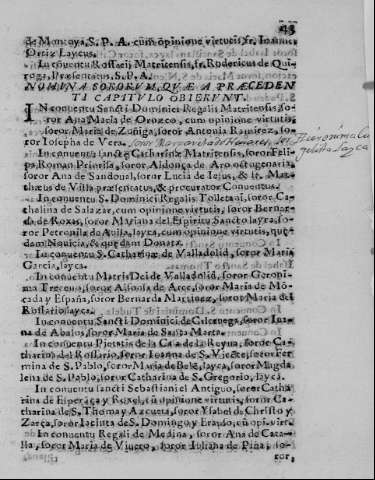 43
de Montoya, S. P. A. cum opinione virtutis, fr. Ioannes
Ortiz Laycus.
In cōuentu Rosarij Matritensis, fr. Rodericus de Qui-
roga, Præsentatus, S. P. A.
NOMINA SORORUM, QUÆ A PRÆCEDEN
TI CAPITULO OBIERUNT.
IN conuentu sancti Dominici Regalis Matritensis, so-
ror Ana Maria de Orozco, cum opinione virtutis,
soror Maria de Zuñiga, soror Antonia Ramirez, so-
ror Iosepha de Vera. soror Margarita de
Hieronima
layca
In conuentu sanctæ Catharinæ Matritensis, soror Feli-
pa Roman Priorissa, soror Aldonça de Aro octogenaria,
soror Ana de Sandoual, soror Lucia de Iesus, & fr. Mat-
thæus de Villa præsentatus, & procurator Conuentus.
In conuentu S. Dominici Regalis Tolletani, soror Ca-
thalina de Salazar, cum opinione virtutis, soror Bernar-
da de Roxas, soror Mariana del Espiritu Sancto layca, so-
ror Petronila de Auila, layca, cum opinione virtutis, quę-
dam Nouicia, & quędam Donata.
In conuentu S. Catharinæ de Valladolid, soror Maria
Garcia, layca.
In conuentu Matris Dei de Valladolid, soror Geroni-
ma Treceno, soror Alfonsa de Arce, soror Maria de Mō-
cada y España, soror Bernarda Martinez, soror Maria del
Rosario, layca.
In conuentu Sancti Dominici de Caleruega, soror Iua-
na de Abalos, soror Maria de Santa Marta.
In conuentu Pietatis de la Casa de la Reyna, soror Ca-
tharina del Rosario, soror Ioanna de S. Vicēte, soror Fer-
mina de S. Pablo, soror Maria de Belē, layca, soror Magda-
lena de S. Pablo, soror Catharina de S. Gregorio, layca.
In conuentu sancti Sebastiani el Antiguo, soror Catha
rina de Esperāça y Ruxel, cū opinione virtutis, soror Ca-
tharina de S. Thomas y Azcueta, soror Ysabel de Christo y
Zarça, soror Iacinta de S. Domingo y Erauso, cū opi. virt.
In conuentu Regali de Medina, soror Ana de Caza-
lla, soror Maria de Viuero, soror Iuliana de Piña, so-
ror,